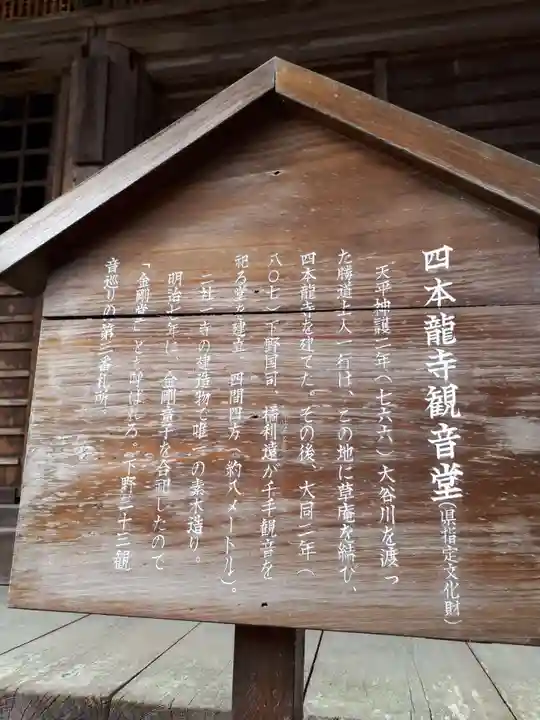 四本龍寺観音堂(県指定文化財)
天平神護二年(七六六)大谷川を渡っ
た勝道上人一行は、この地に草庵を結び、
四本龍寺を建てた。その後、大同二年(
八〇七)下野国司、橘利遠が千手観音を
祀る堂を建立。四間四方(約八メートル)。
二社一寺の建造物で唯一の素木造り。
明治七年に、金剛童子を合祀したので
「金剛堂」とも呼ばれる。下野三十三観
音巡りの第二番札所。